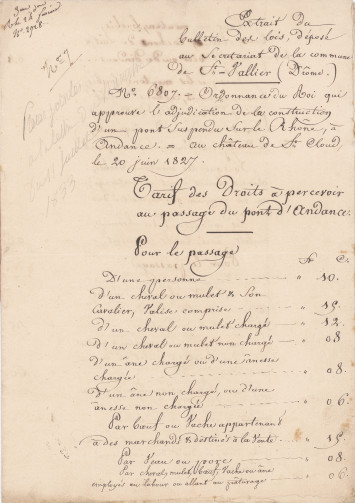 N° 7
Extrait du
bulletin des lois, déposé
au Secrétariat de la commune
de St Vallier (Drôme.)
N° 6807. = Ordonnance du Roi qui
approuve l'adjudication de la construction
d'un pont suspendu sur le Rhône, à
Andance. = au château de St Cloud,
le 20 juin 1827.
Tarif des Droits à percevoir
au passage du pont d'Andance.
Pour le passage
fr Ce
D'une personne " 10.
d'un cheval ou mulet & Son
Cavalier, Valise comprise " 15.
d'un cheval ou mulet chargé " 12.
D'un cheval ou mulet non chargé " 08
D'un âne chargé ou d'une ânesse
chargée " 08.
D'un âne non chargé, ou d'une
ânesse non chargée " 06.
Par Bœuf ou Vache appartenant
à des marchands & destinés à la Vente " 15.
Par Veau ou porc " 08
Par cheval, mulet, Bœuf, Vache ou âne
employés au labour ou allant au pâturage " 06